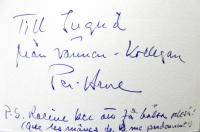 Till Ingrid
från vännen - kollegan
Per-Arne
P.S. Racine kec au få bättre
(que les mânes de me pardonnent)